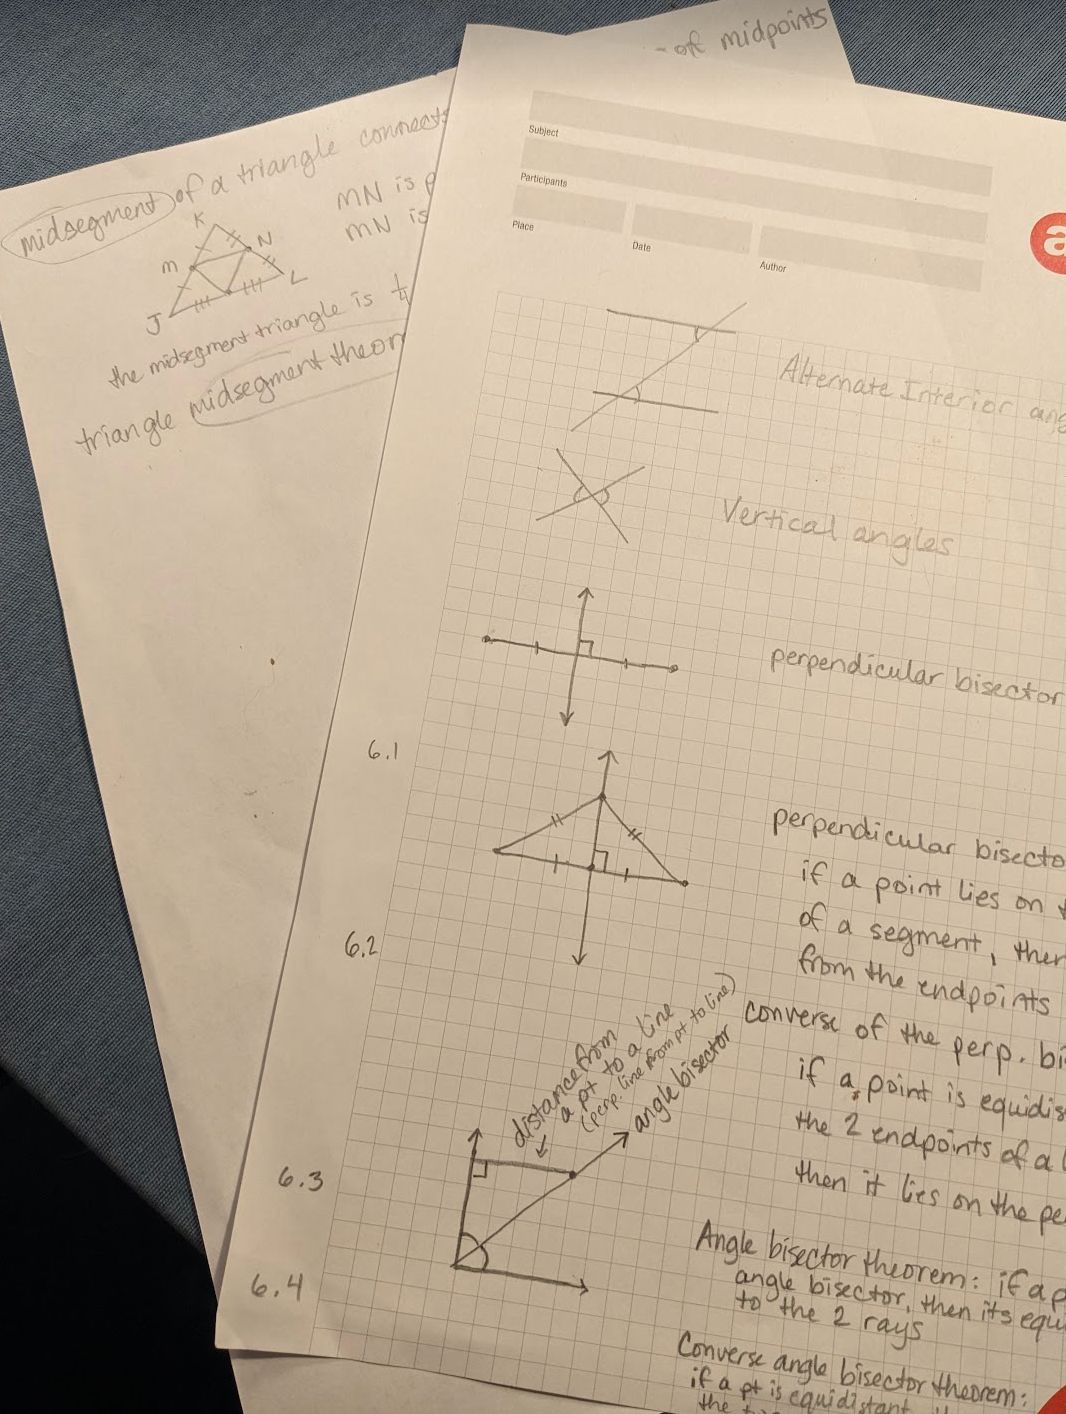 - of midpoints
midsegment of a triangle connects
MN is
MN is
K
N
M
L
J
the midsegment triangle is 1/4
triangle midsegment theor
Subject
Participants
Place
Date
Author
a
Alternate Interior ang
Vertical angles
perpendicular bisector
6.1
perpendicular bisecto
if a point lies on t
of a segment, then
from the endpoints
6.2
converse of the perp. bi
if a point is equidis
the 2 endpoints of a
then it lies on the pe
distance from
a pt to a line
(perp. line from pt to line)
angle bisector
6.3
Angle bisector theorem: if a p
angle bisector, then its equ
to the 2 rays
6.4
Converse angle bisector theorem:
if a pt is equidistant
the